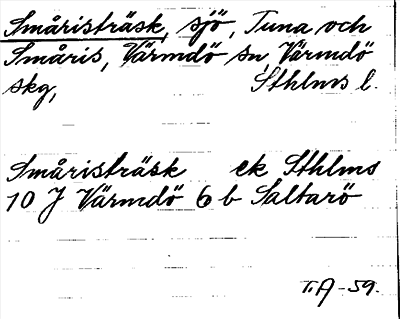 Småristräsk, sjö, Tuna och
Småris, Värmdö sn, Värmdö
skg, Sthlms l.
Småristräsk ek Sthlms
10 J Värmdö 6 b Saltarö
T.A-59.